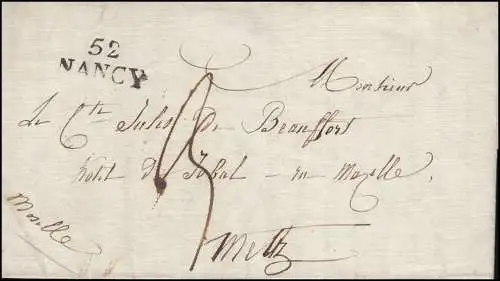 52
NANCY
Monsieur
Le Cte Jules De Beauffort
hotel d'Jobal en Mozelle,
Metz
Moselle
3